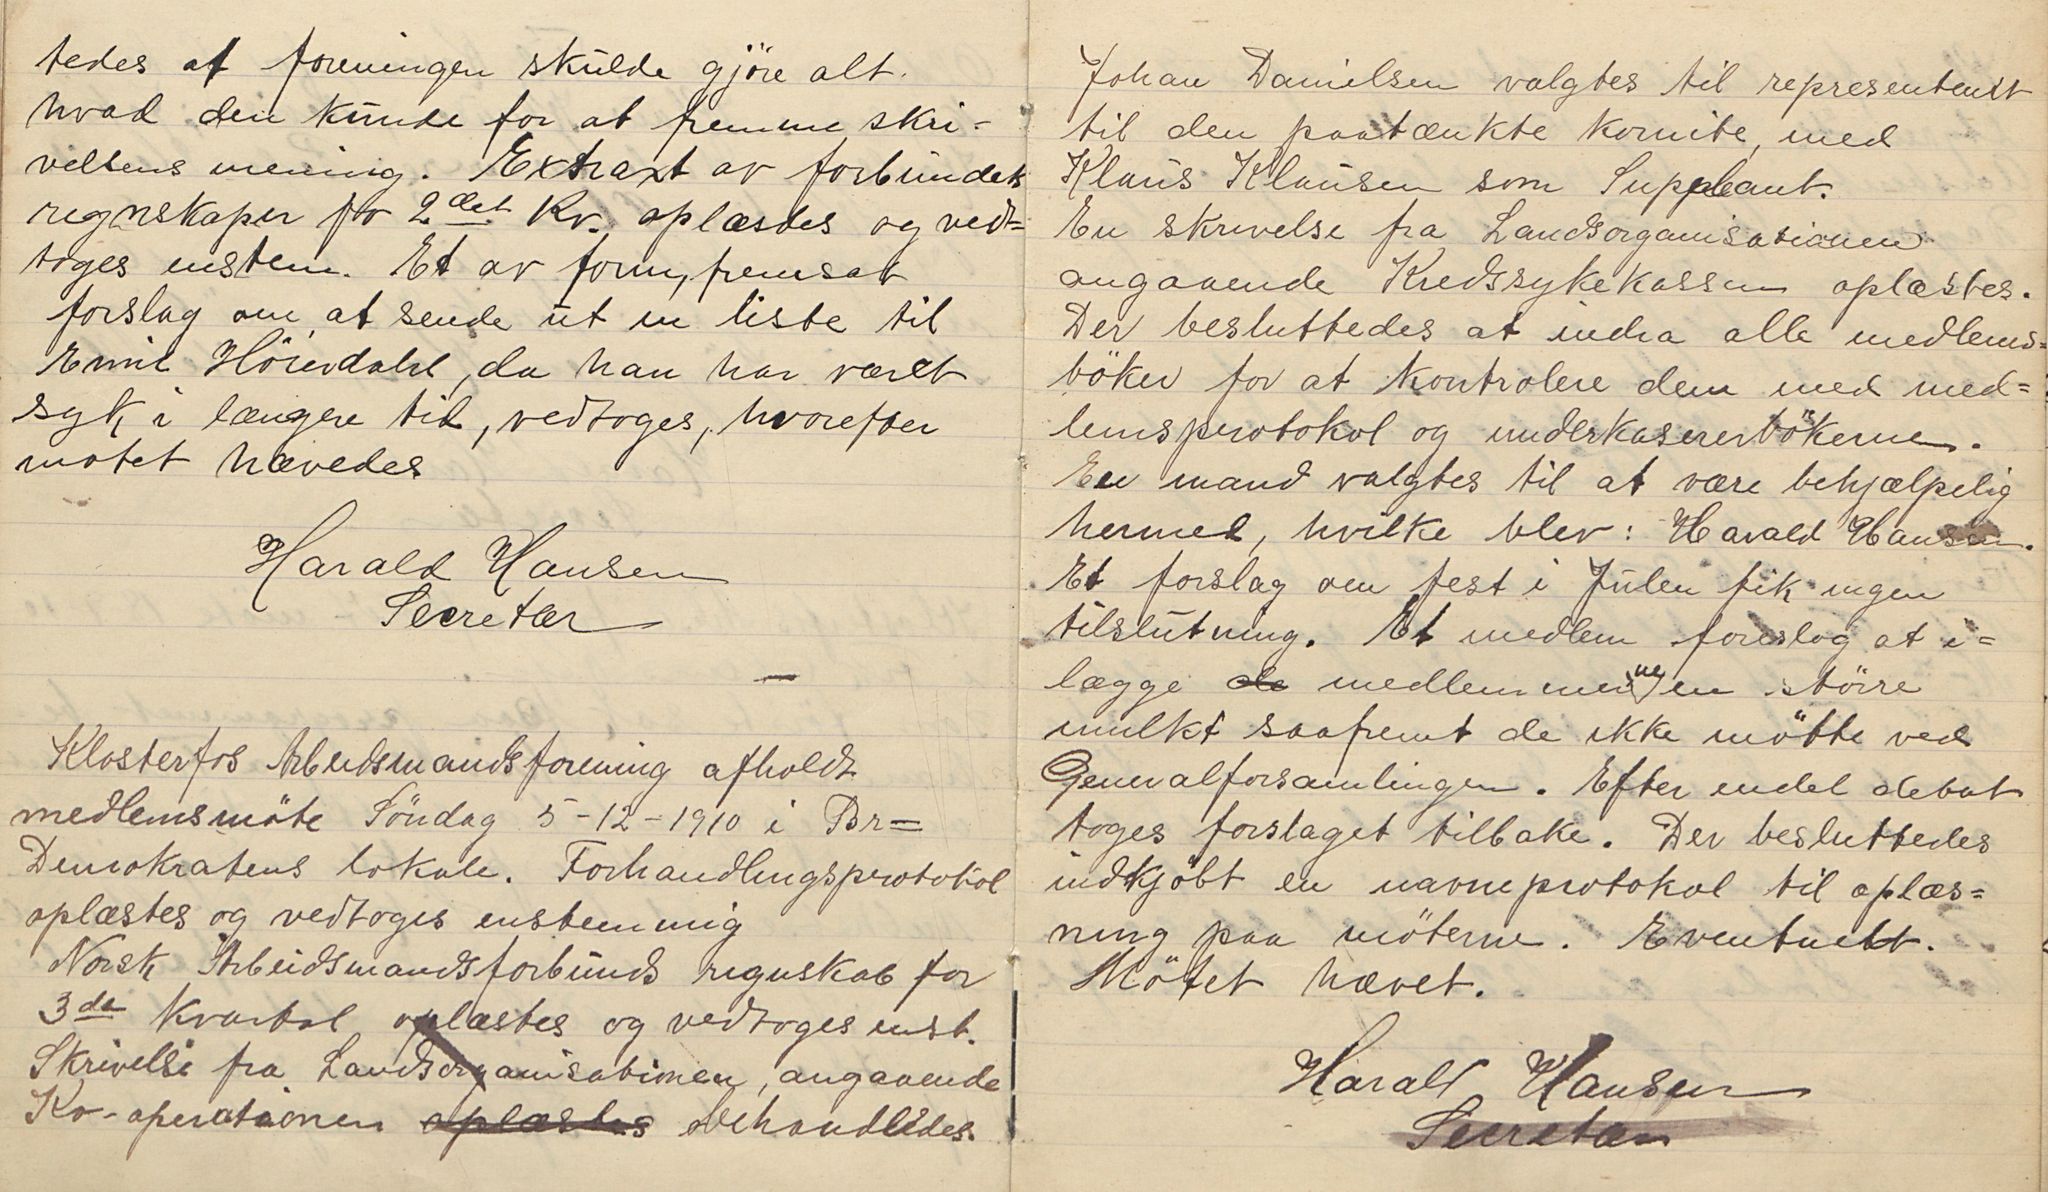 tedes at foreningen skulde gjöre alt.
hvad den kunde for at fremme skri-
velsens mening. Extraxt av forbundets
regnskaper for 2det Kv. oplæstes og ved-
toges enstem. Et av form, fremsat
forslag om at sende ut en liste til
Emil Höierdahl, da han har været
syk i længere tid, vedtoges, hvorefter
mötet hævedes
Harald Hansen
Secretær
Klosterfos Arbeidsmandsforening afholdt
medlemsmöte Söndag 5-12-1910 i Br=
Demokratens lokale. Forhandlingsprotokol
oplæstes og vedtoges enstemmig
Norsk Arbeidsmandsforbunds regnskab for
3de Kvartal oplæstes og vedtoges enst.
Skrivelse fra Landsorganisationen, angaaende
Ko-operationen oplæstes behandledes.
Johan Danielsen valgtes til representent
til den paatænkte komite, med
Klaus Klausen som Suppleant.
En skrivelse fra Landsorganisationen
angaaende Kredssykekassen oplæstes.
Der besluttedes at indra alle medlems=
böker for at kontrolere dem med med=
lemsprotokol og underkasererbökerne.
En mand valgtes til at være behjælpelig
hermed, hvilke blev: Harald Hansen.
Et forslag om fest i Julen fik ingen
tilslutning. Et medlem foreslog at i=
lægge de medlemmerne en större
mulkt saafremt de ikke mötte ved
Generalforsamlingen. Efter endel debat
toges forslaget tilbake. Der besluttedes
indkjöbt en navneprotokol til oplæs=
ning paa möterne. Eventuelt.
Mötet hævet.
Harald Hansen
Secretær